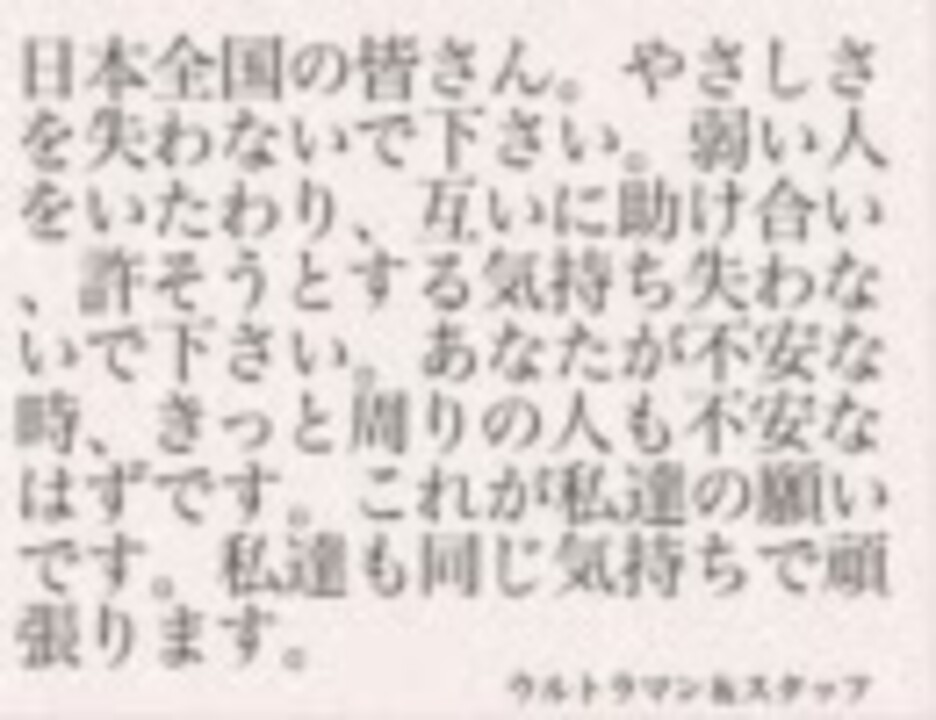 日本全国の皆さん。やさしさ
を失わないで下さい。弱い人
をいたわり、互いに助け合い
、許そうとする気持ち失わな
いで下さい。あなたが不安な
時、きっと周りの人も不安な
はずです。これが私達の願い
です。私達も同じ気持ちで頑
張ります。
ウルトラマン&スタッフ